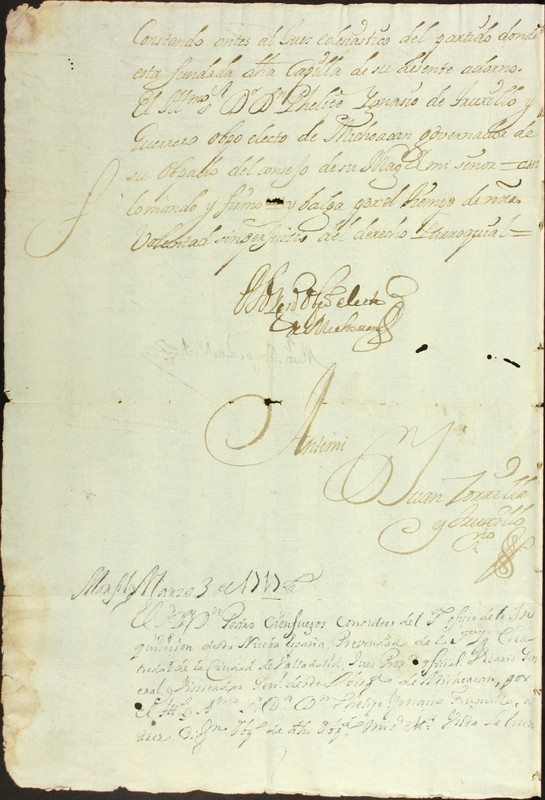 Constando antes al Juez eclesiastico del partido donde
esta fundada dha Capilla de su desente adorno.
El Illmo. Sr. Dr. Dn. Phelipe Ignasio de Truxillo y
Guerrero obpo electo de Michoacan governador de
su obpado del consejo de su Magd. mi señor = assi
lo mando y firmo = y balga por el tiempo de nra
Voluntad sin perjuicio del derecho Parroquial =
Phe obpo electo
de Mechoacan
Ante mi
Juan Zorrilla
y Truxillo
srio
Marzo 3 de 1717
El Sr. Dr. Dn. Pedro Cienfuegos Comissro del St. officio de la In
quisicion desta Nueva España, Prevendado de la Sta. Ygla. Cate
dral de la Ciudad de Valladolid, Juez Prov. official Vicario Gen
eral, y Vissitador Genl. deste Obispdo. de Michoacan, por
el Illmo. Sr. Dr. Dn. Phelipe Ygnacio Truxillo, y
Guerrero Digmo. Obpo. de dho Obpdo. del